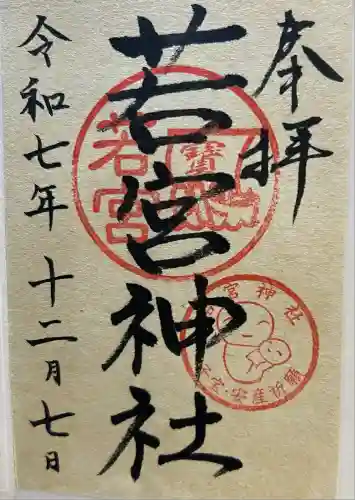 奉拝
若宮神社
令和七年十二月七日
若宮
宮神社
安産祈願